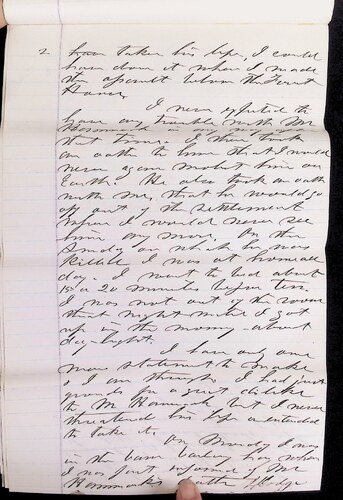 2 have taken his life, I could
have done it when I made
the assault before the Court
House.
I never expected to
have any trouble with Mr
Hammock in any
that time. I then took
an oath to him that I would
never again molest him on
Earth. He also took an oath
with me, that he would go
off out of the settlement
where I would never see
him any more. On the
Sunday on which he was
killed I was at home all
day. I went to bed about
15 or 20 minutes before ten.
I was not out of the room
that night until I got
up in the morning about
day-light.
I have only one
more statement to make
& I am through. I had just
grounds for a great dislike
to Mr Hammock but I never
threatened his life or intended
to take it.
On Monday I was
in the barn when
I was first informed of Mr
Hammock's